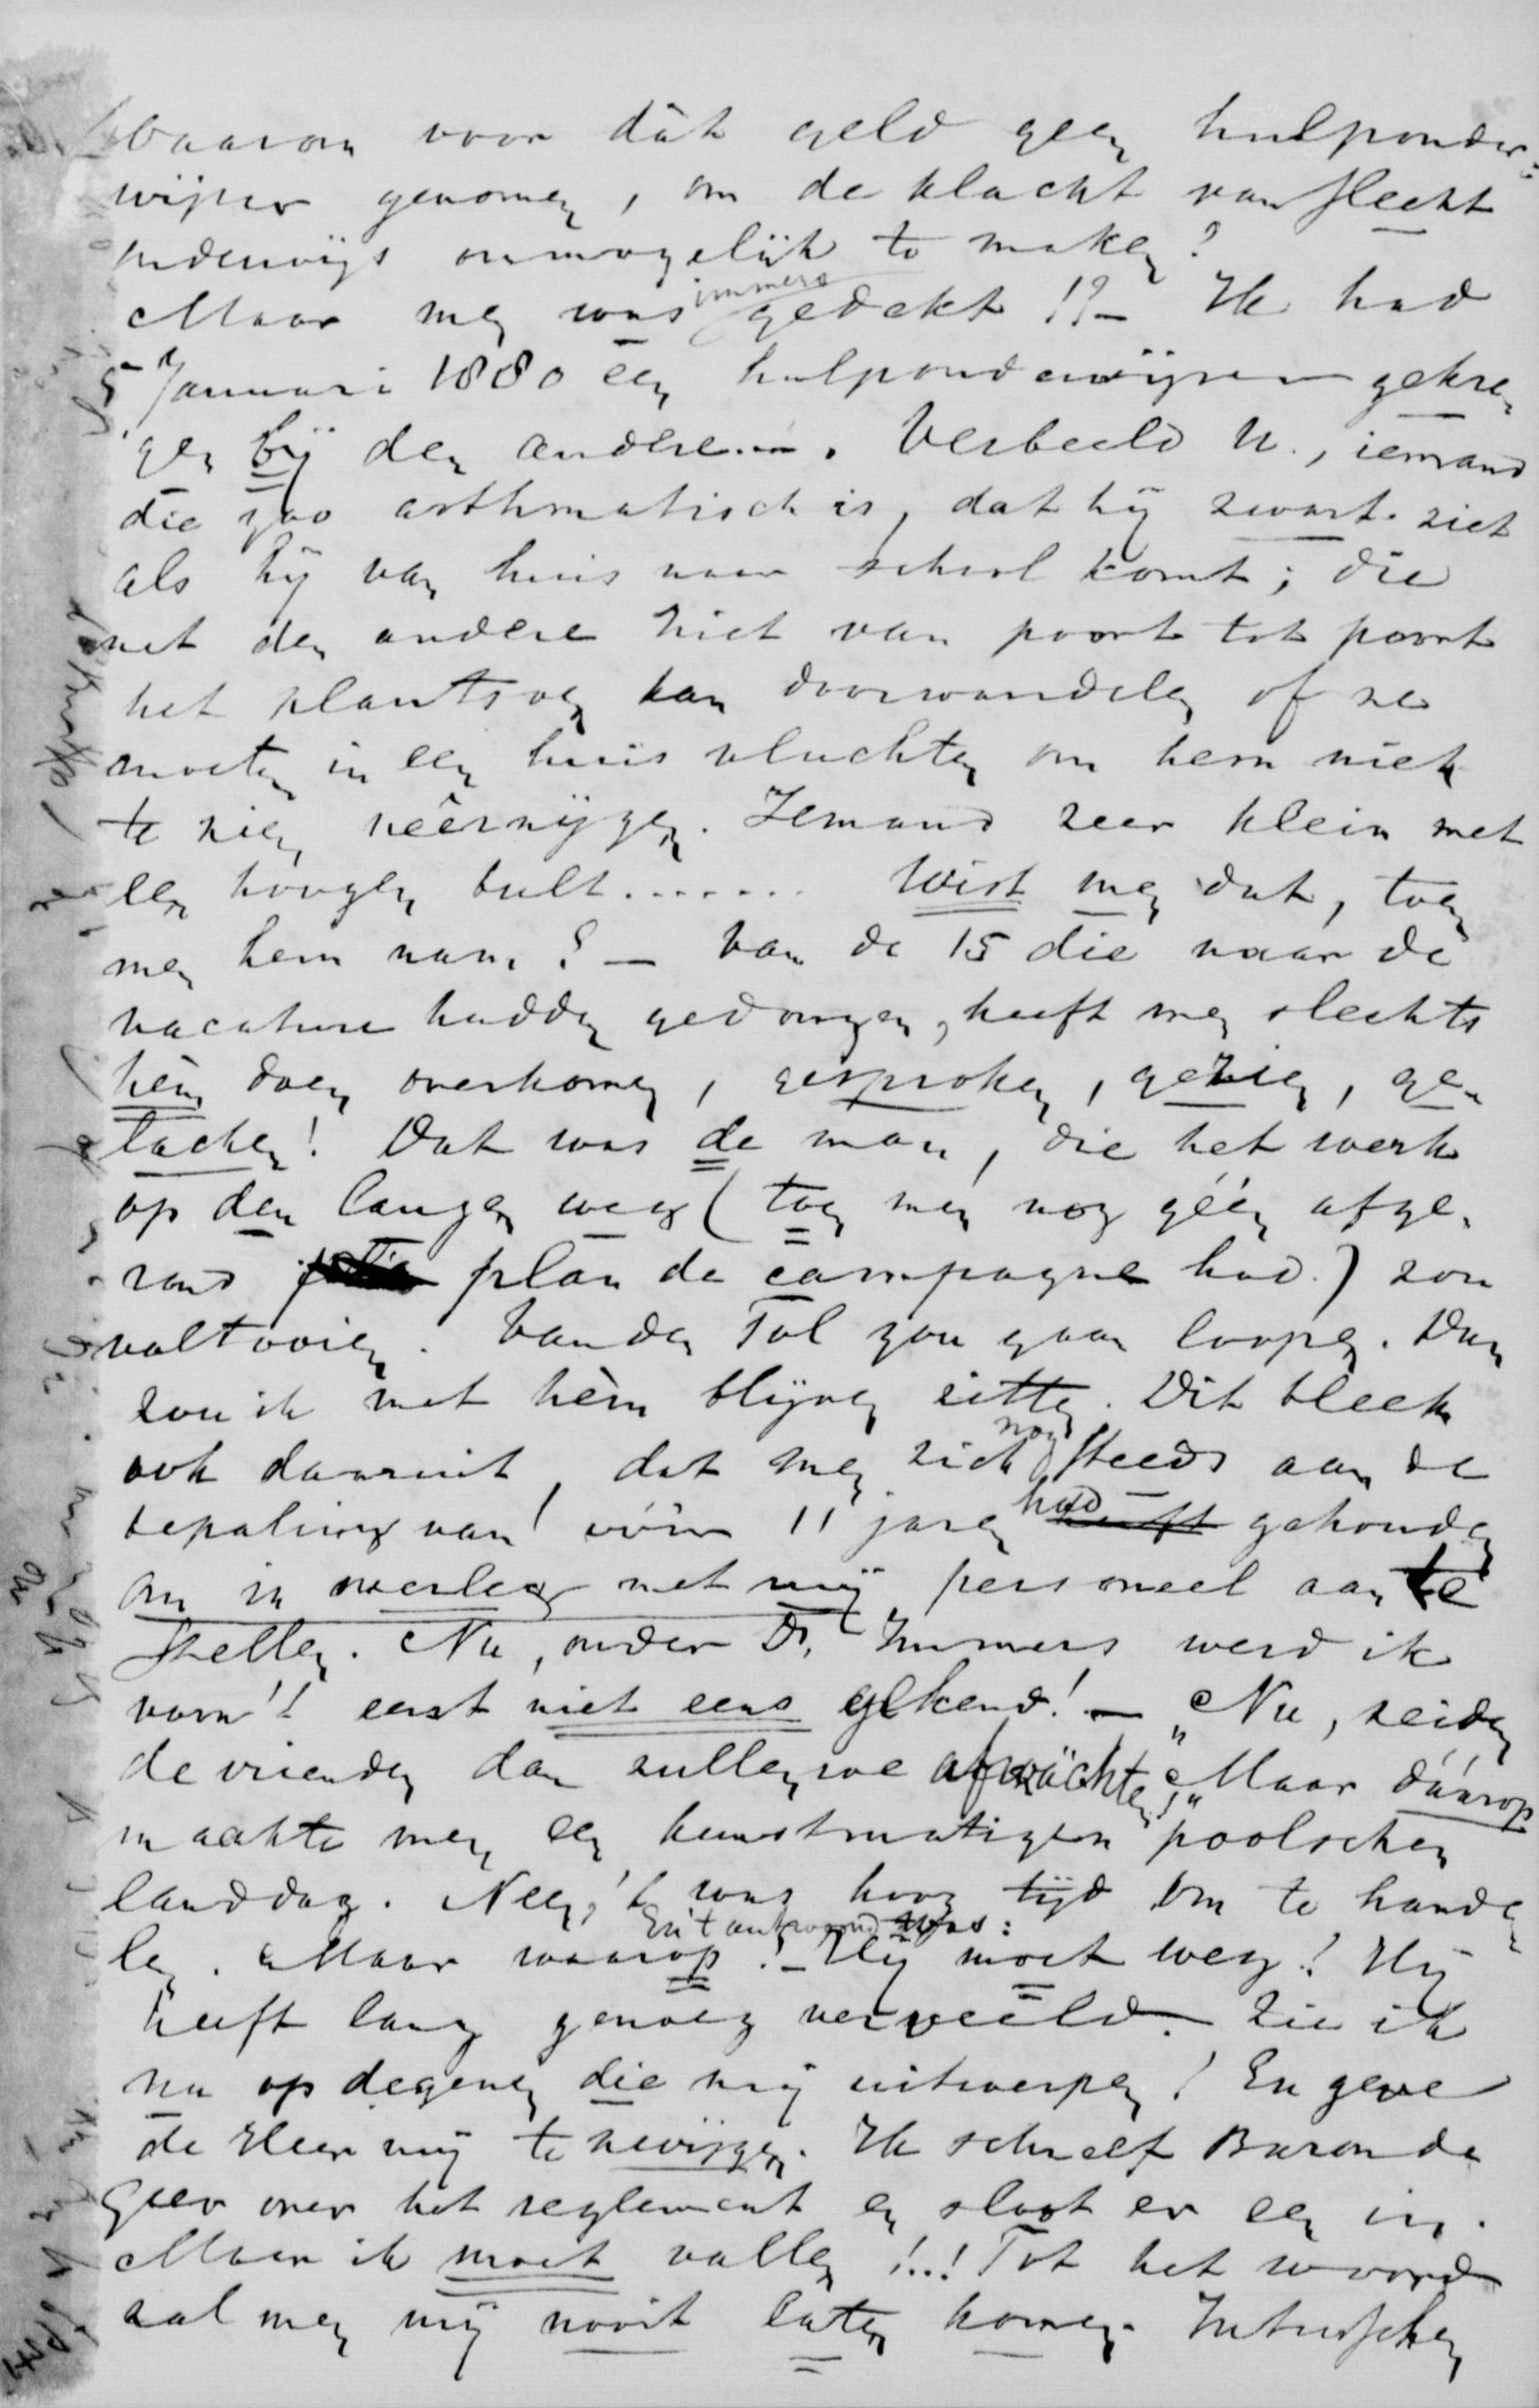 Waarom voor dàt geld geen hulponder-
wijzer genomen, om de klacht van slecht
onderwijs onmogelijk te maken?
Maar men was immers gedekt !?– Ik had
5 Januari 1880 een hulponderwijzer gekre-
gen bij den anderen. Verbeeld U., iemand
die zoo asthmatisch is, dat hij zwart ziet
als hij van huis naar school komt; die
met den andere niet van poort tot poort
het plantsoen kan doorwandelen of ze
moeten in een huis vluchten om hem niet
te zien neêrzijgen. Iemand zeer klein met
een hoogen bult....... Wist men dat, toen
men hem nam? – Van de 15 die naar de
vacature hadden gedongen, heeft men slechts
hèm doen overkomen, gesproken, gezien, ge-
rochen! Dat was de man, die het werk
op den langen weg (toen men nog géén afge-
rond plan de campagne had.) zou
voltooien. Van den Tol zou gaan loopen. Dan
zou ik met hèm blijven zitten. Dit bleek
ook daaruit, dat men zich nog steeds aan de
bepaling van vóór 11 jaren had heeft gehouden
om in overleg met mij personeel aan te
stellen. Nu, onder Dr. Immers werd ik
voor 't eerst niet eens gekend! – „Nu, zeiden
de vrienden dan zullen we afwachten!" Maar dáárop
maakte men een kunstmatigen poolschen
landdag. Neen, 't was hoog tijd om te hande-
len. Maar waarop? En 't antwoord was: – Hij moet weg! Hij
heeft lang genoeg verveeld. – Zie ik
nu op degenen die mij uitwerpen! En geve
de Heer mij te zwijgen. Ik schreef Baron de
Geer over het reglement en sloot er een in.
Maar ik moet vallen !..! Tot het woord
zal men mij nooit laten komen. Intusschen